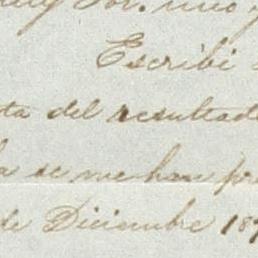 Sor. mio
Escribi
ta del resultado
se me han
de Diciembre 187